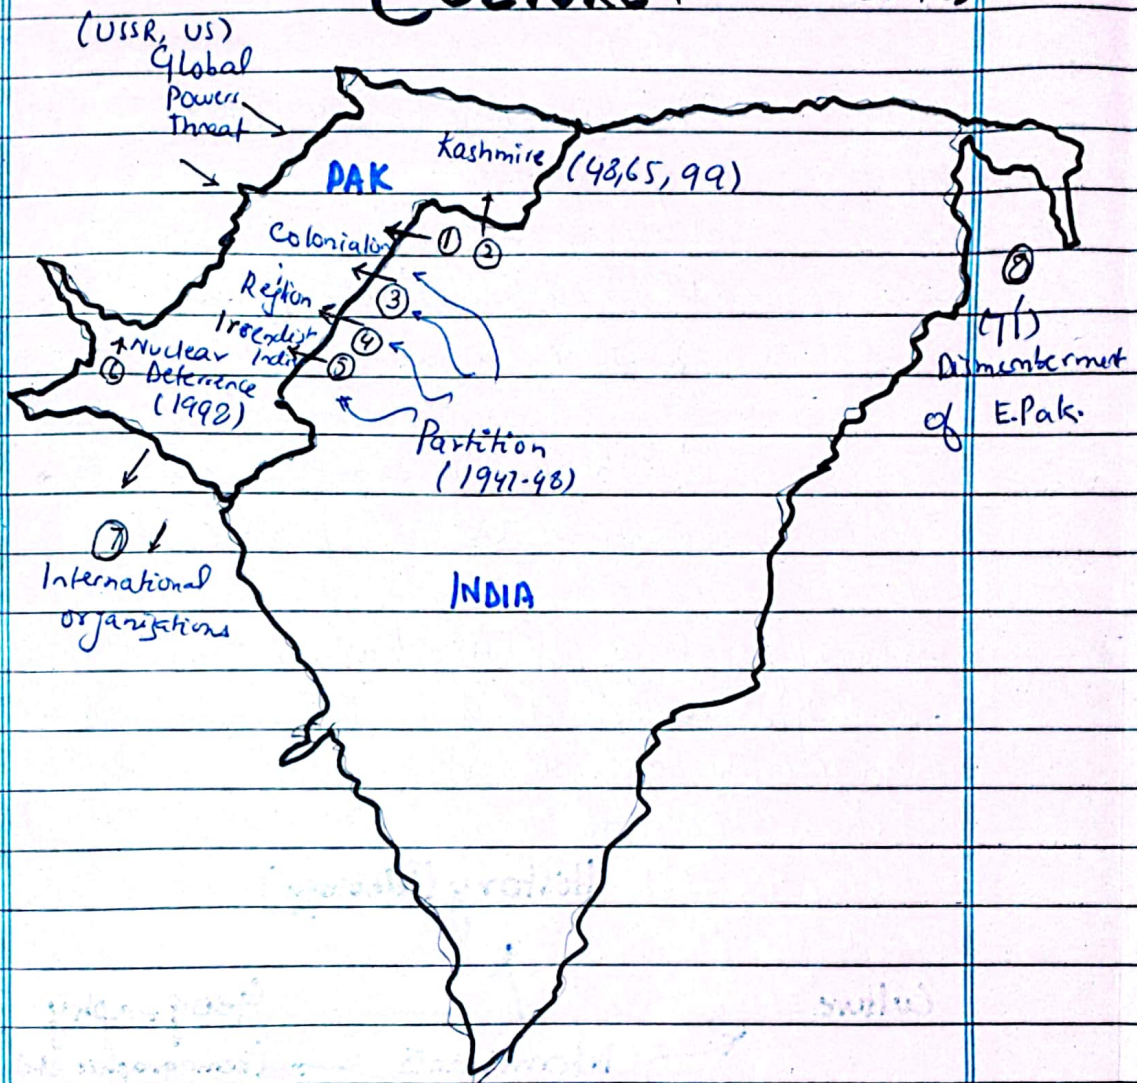 (USSR, US)
Global
Powers
Threat
PAK
Kashmire
(48,65,99)
①
②
③
Region
④
⑤
Nuclear
⑥
Deterrence
(1998)
Partition
(1947-48)
⑧
(71)
Dismemberment
of E.Pak.
⑦
International
organizations
INDIA